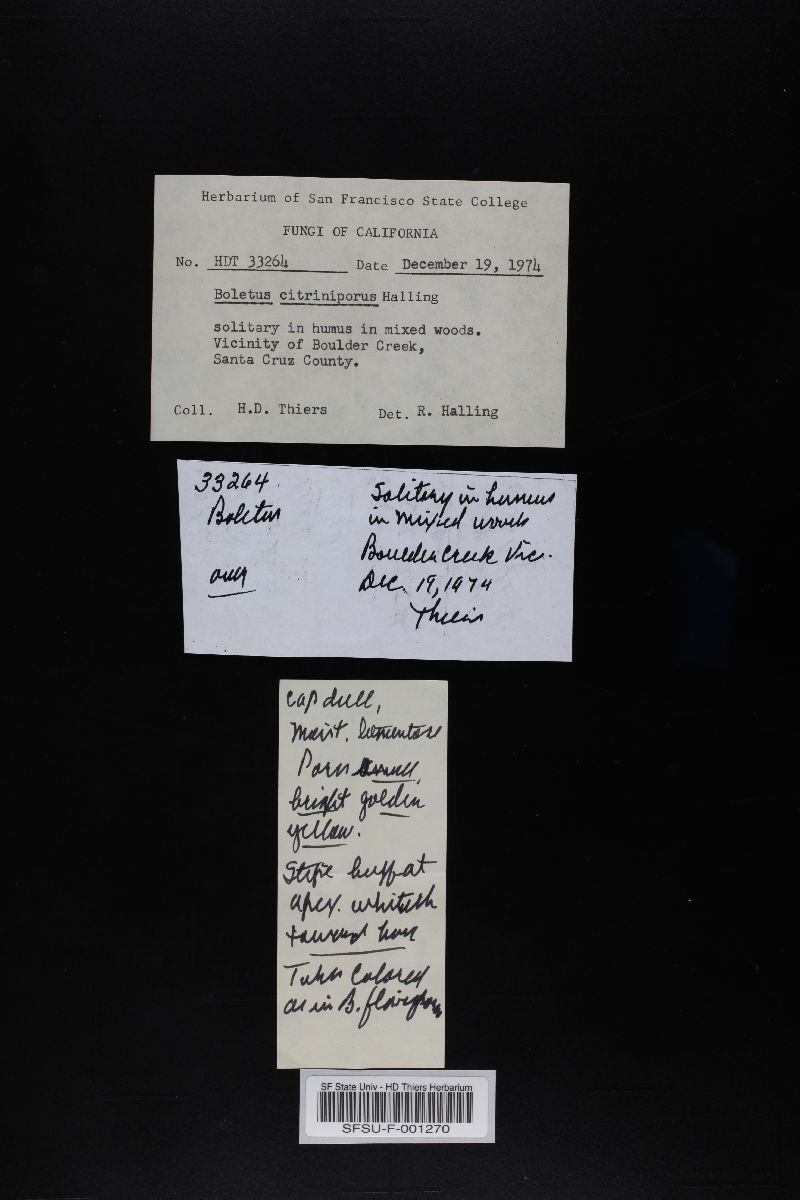 Herbarium of San Francisco State College
FUNGI OF CALIFORNIA
No. HDT 33264 Date December 19, 1974
Boletus citriniporus Halling
solitary in humus in mixed woods.
Vicinity of Boulder Creek,
Santa Cruz County.
Coll. H.D. Thiers Det. R. Halling
33264.
Boletus
over
Solitary in humus
in mixed woods
Boulder Creek Vic.
Dec. 19, 1974
Thiers
cap dull,
moist. tomentose
Pores small,
bright golden
yellow.
Stipe buff at
apex. whitish
toward base
Tubes colored
as in B. flaviporus
SF State Univ - HD Thiers Herbarium
SFSU-F-001270